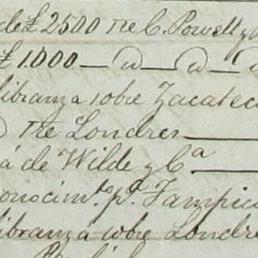 de £ 2500 tre C. Powell y
£ 1.000 — @ — @ — @
libranza sobre Zacatec
@ tre Londres —
á de Wilde y Cª —
onocimto pa Tampic
libranza sobre Londre